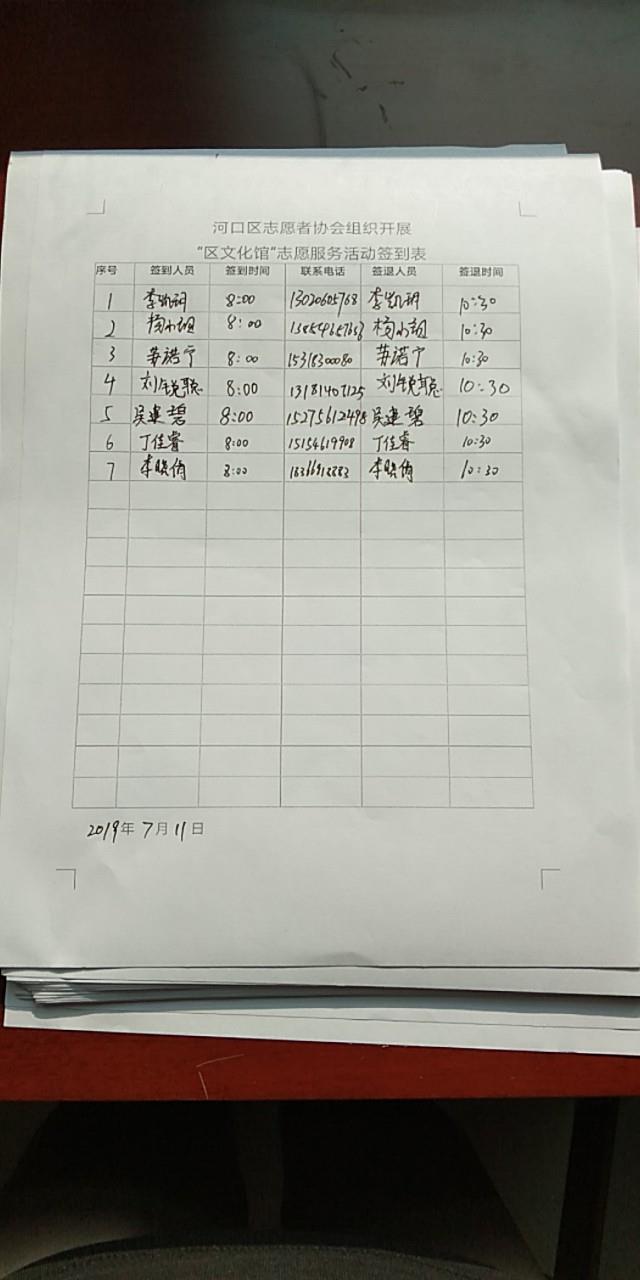 河口区志愿者协会组织开展
“区文化馆”志愿服务活动签到表
序号 签到人员 签到时间 联系电话 签退人员 签退时间
1 李凯玥 8:00 13020605768 李凯玥 10:30
2 8:00 10:30
3 苏诺宁 8:00 15318300080 苏诺宁 10:30
4 8:00 13181407125 10:30
5 吴建碧 8:00 15275612498 吴建碧 10:30
6 丁佳睿 8:00 15154619908 丁佳睿 10:30
7 李晓倩 8:00 李晓倩 10:30
2019年7月11日